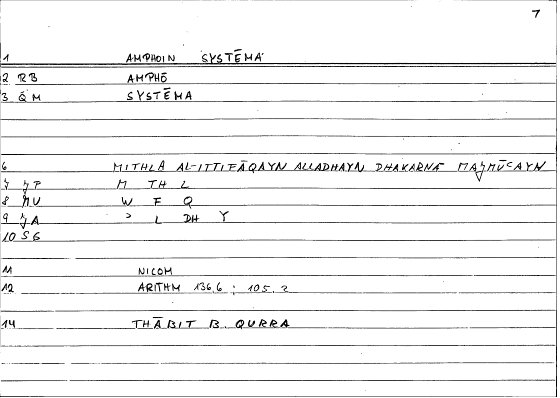 7
1 AMPHOIN SYSTĒMA
2 RB AMPHŌ
3 QM SYSTĒMA
6 MITHLĀ AL-ITTIFĀQAYN ALLADHAYN DHAKARNĀ MAǦMŪʿAYN
7 ǦP M TH L
8 W F Q
9 ǦA ʾ L DH Y
10 SG
11 NICOM
12 ARITHM 136,6 ; 105.2
14 THĀBIT B. QURRA